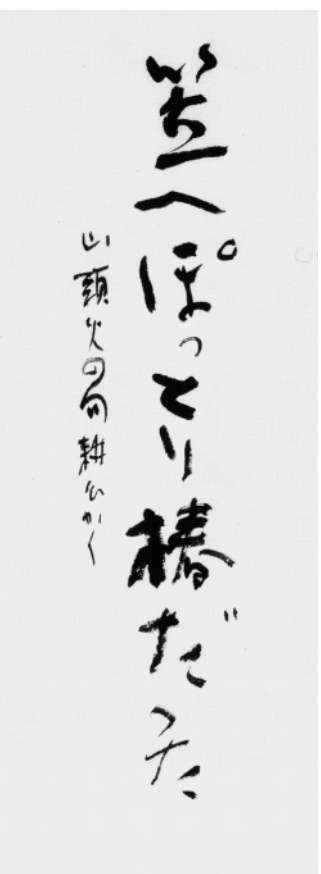 笠へぽっとり椿だった
山頭火の句耕石かく